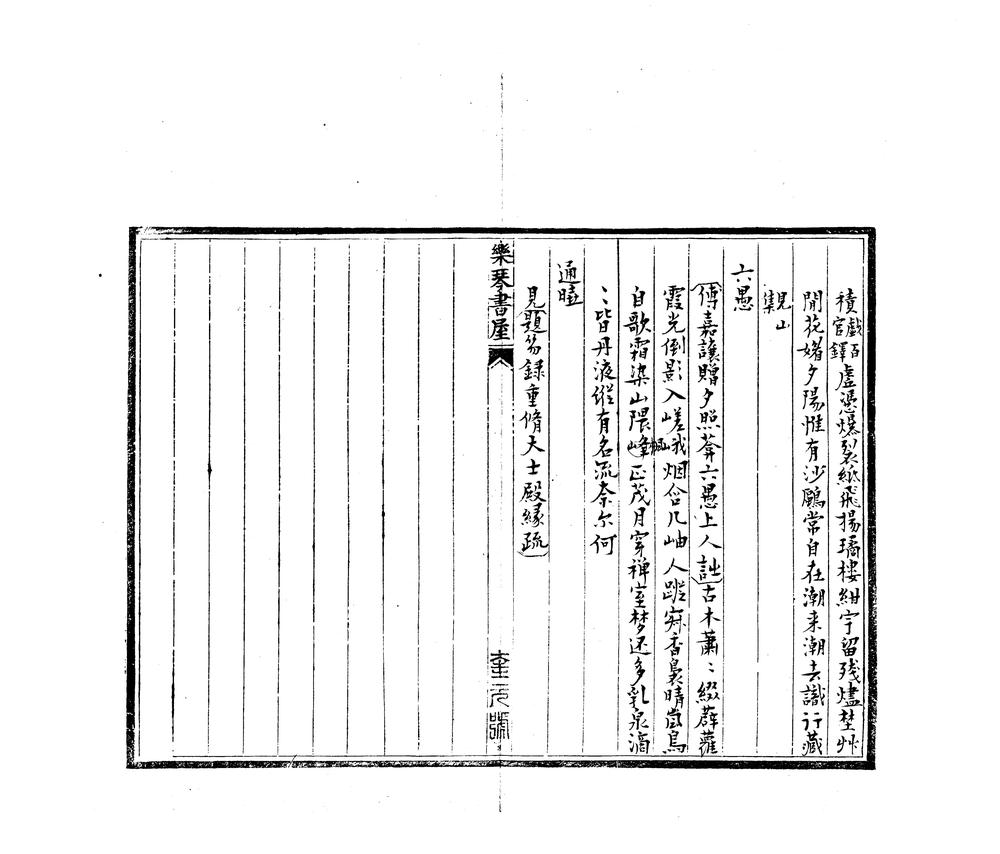 積官戲百鐸虛憑爆裂紙飛揚璚樓紺宇留殘燼埜艸
閒花媚夕陽惟有沙鷗常自在潮来潮去識行藏
觀山集
六愚
傅嘉讓贈夕照菴六愚上人詩古木蕭〻綴薜蘿
霞光倒影入嵯峨烟含几岫人蹤寂香裊晴嵐鳥
自歌霜染山隈楓正茂月穿禅室梦还多乳泉滴
〻皆丹液縱有名流奈尔何
通曉
見題芴録重脩大士殿緣疏
樂琴書屋
奎元號